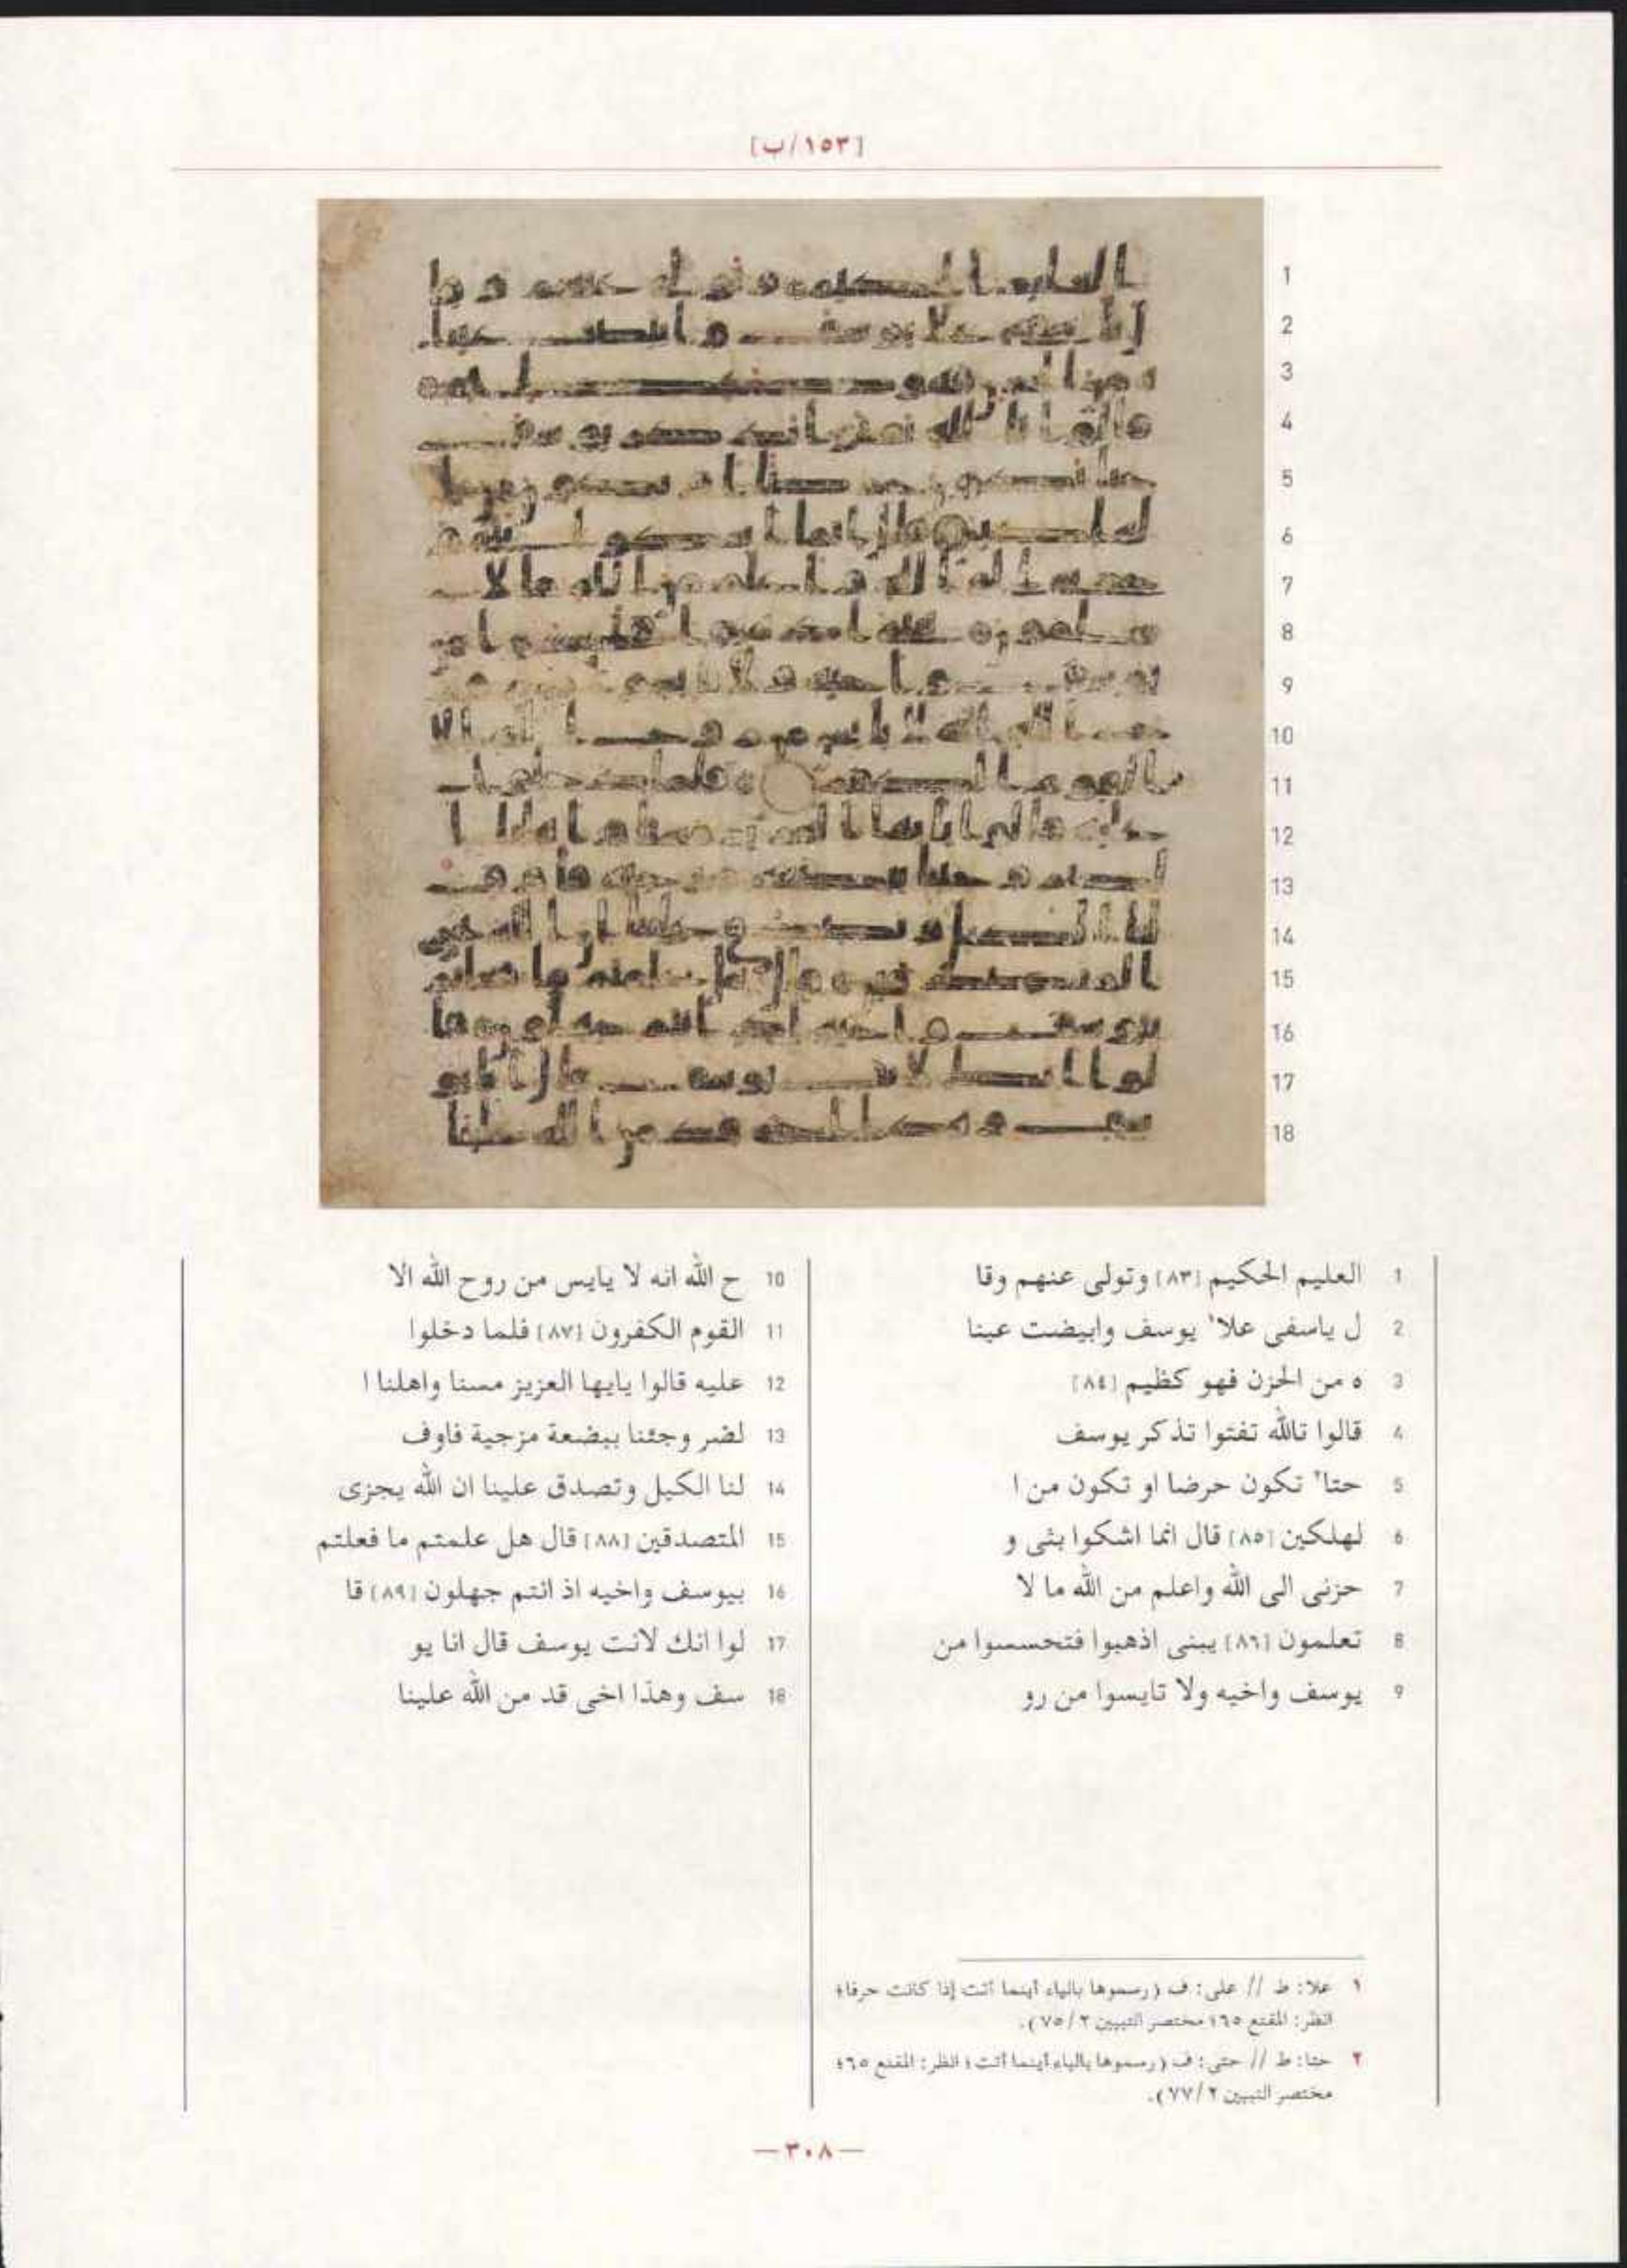 [١٥٣/ب]
1 العليم الحكيم [٨٣] وتولى عنهم وقا
2 ل ياسفى علا١ يوسف وابيضت عينا
3 ه من الحزن فهو كظيم [٨٤]
4 قالوا تالله تفتوا تذكر يوسف
5 حتا٢ تكون حرضا او تكون من ا
6 لهلكين [٨٥] قال انما اشكوا بثى و
7 حزنى الى الله واعلم من الله ما لا
8 تعلمون [٨٦] يبنى اذهبوا فتحسسوا من
9 يوسف واخيه ولا تايسوا من رو
10 ح الله انه لا يايس من روح الله الا
11 القوم الكفرون [٨٧] فلما دخلوا
12 عليه قالوا يايها العزيز مسنا واهلنا ا
13 لضر وجئنا ببضعة مزجية فاوف
14 لنا الكيل وتصدق علينا ان الله يجزى
15 المتصدقين [٨٨] قال هل علمتم ما فعلتم
16 بيوسف واخيه اذ انتم جهلون [٨٩] قا
17 لوا انك لانت يوسف قال انا يو
18 سف وهذا اخى قد من الله علينا
١ علا: ط // على: ف (رسموها بالياء أينما أتت إذا كانت حرفا؛
انظر: المقنع ٦٥؛ مختصر التبيين ٢/ ٧٥).
٢ حتا: ط // حتى: ف (رسموها بالياء أينما أتت؛ انظر: المقنع ٦٥؛
مختصر التبيين ٢/ ٧٧).
—٣٠٨—